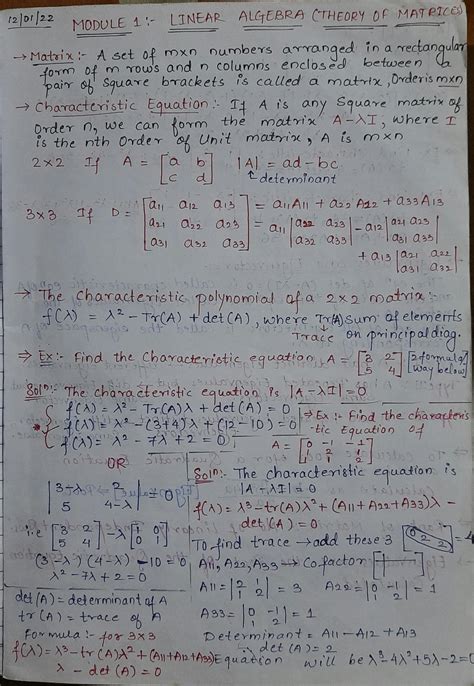 12/01/22
MODULE 1:- LINEAR ALGEBRA (THEORY OF MATRICES)
→ Matrix:- A set of mxn numbers arranged in a rectangular
form of m rows and n columns enclosed between a
pair of square brackets is called a matrix, Order is mxn
→ Characteristic Equation:- If A is any Square matrix of
Order n, we can form the matrix A-λI, where I
is the nth Order of Unit matrix, A is mxn
2x2 If A = [a b] |A| = ad - bc
c d ↑ determinant
3x3 If D = |a11 a12 a13| = a11A11 + a22A12 + a33A13
a21 a22 a23 = a11 |a22 a23| - a12 |a21 a23|
a31 a32 a33 a32 a33 a31 a33
+ a13 |a21 a22|
a31 a32
→ The characteristic polynomial of a 2x2 matrix:
f(λ) = λ² - Tr(A) + det(A), where Tr(A) sum of elements
Trace on principal diag.
⇒ Ex:- Find the Characteristic equation, A = [3 2] [2 formula of
5 4 way below]
Solⁿ:- The characteristic equation is |A - λI| = 0
f(λ) = λ² - Tr(A)λ + det(A) = 0
f(λ) = λ² - (3+4)λ + (12-10) = 0
f(λ) = λ² - 7λ + 2 = 0
OR
|3-λ 2| = 0
5 4-λ
i.e [3 2] - λ[1 0]
5 4 0 1
(3-λ)(4-λ) - 10 = 0
λ² - 7λ + 2 = 0
det(A) = determinant of A
tr(A) = trace of A
Formula:- for 3x3
f(λ) = λ³ - tr(A)λ² + (A11+A22+A33)
λ - det(A) = 0
⇒ Ex:- Find the characteris
tic Equation of
A = [0 -1 -1]
1 2 1
Solⁿ:- The characteristic equation is
|A - λI| = 0
f(λ) = λ³ - tr(A)λ² + (A11 + A22 + A33)λ -
det(A) = 0
To find trace → add these 3
A11, A22, A33 → Cofactor
A11 = |2 1| = 3 A22 = |0 -1| = 1
1 2
A33 = |0 -1| = 1
1 2
Determinant = A11 - A12 + A13
∴ det(A) = 2
Equation will be λ³ - 4λ² + 5λ - 2 = 0